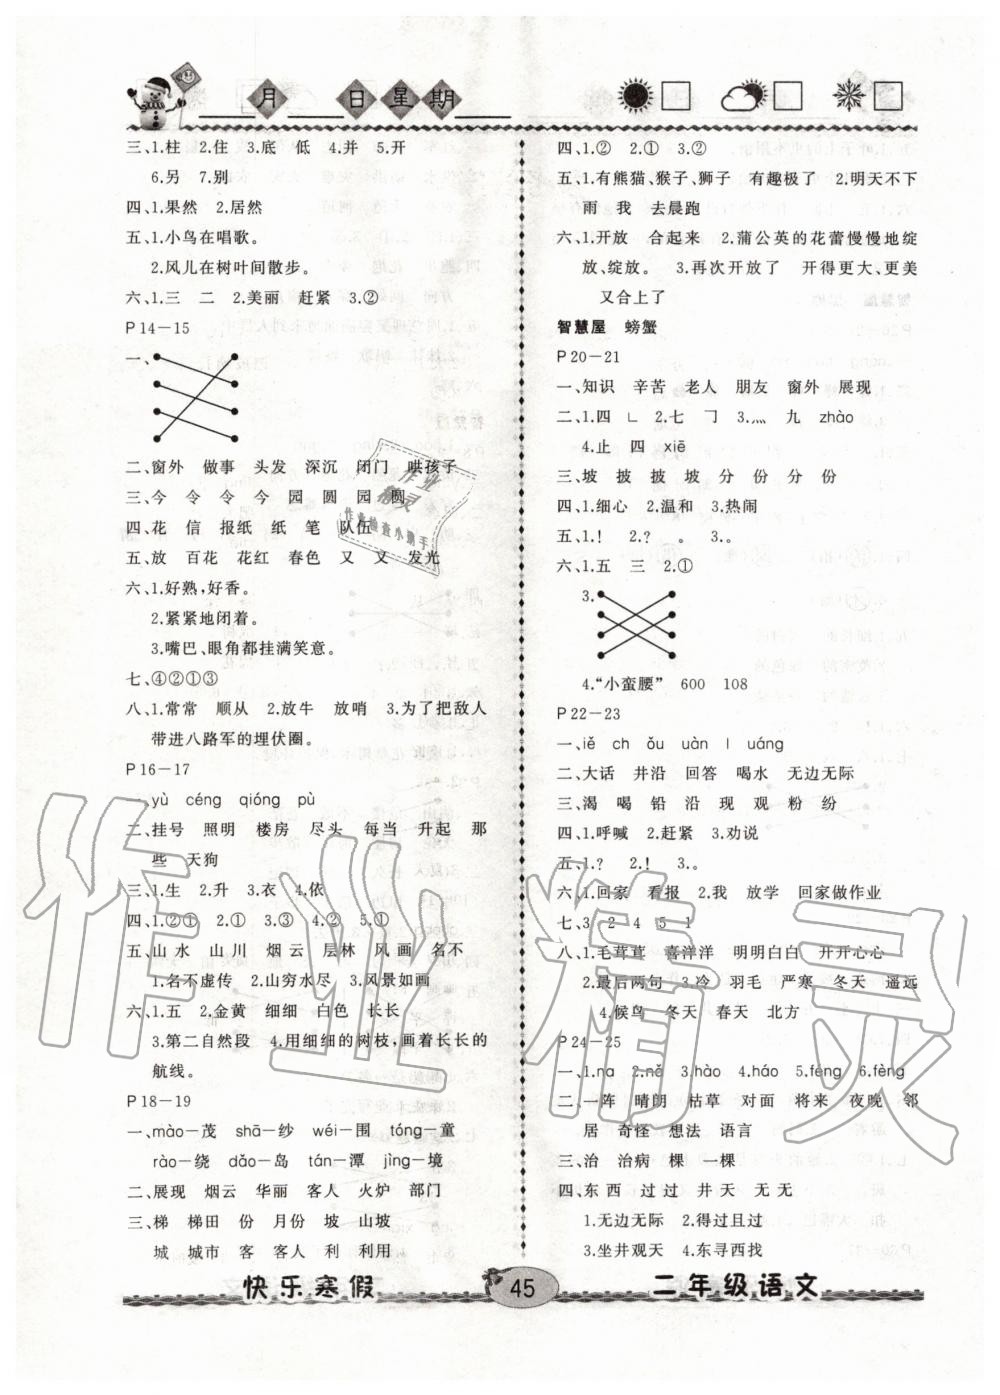 月 日 星 期
三、1.柱 2.住 3.底 低 4.并 5.开
6.另 7.别
四、1.果然 2.居然
五、1.小鸟在唱歌。
2.风儿在树叶间散步。
六、1.三 二 2.美丽 赶紧 3.②
P14－15
一、
二、窗外 做事 头发 深沉 闭门 哄孩子
三、今 令 令 今 园 圆 园 圆
四、花 信 报纸 纸 笔 队伍
五、放 百花 花红 春色 又 文 发光
六、1.好熟，好香。
2.紧紧地闭着。
3.嘴巴、眼角都挂满笑意。
七、④②①③
八、1.常常 顺从 2.放牛 放哨 3.为了把敌人
带进八路军的埋伏圈。
P16－17
一、yù céng qióng pù
二、挂号 照明 楼房 尽头 每当 升起 那
些 天狗
三、1.生 2.升 3.衣 4.依
四、1.②① 2.① 3.③ 4.② 5.①
五、山 水 山 川 烟 云 层林 风 画 名不
1.名不虚传 2.山穷水尽 3.风景如画
六、1.五 2.金黄 细细 白色 长长
3.第二自然段 4.用细细的树枝，画着长长的
航线。
P18－19
一、mào－茂 shā－纱 wéi－围 tóng－童
rào－绕 dǎo－岛 tán－潭 jìng－境
二、展现 烟云 华丽 客人 火炉 部门
三、梯 梯田 份 月份 坡 山坡
城 城市 客 客人 利 利用
四、1.② 2.① 3.②
五、1.有熊猫、猴子、狮子 有趣极了 2.明天不下
雨 我 去晨跑
六、1.开放 合起来 2.蒲公英的花蕾慢慢地绽
放、绽放。 3.再次开放了 开得更大、更美
又合上了
智慧屋 螃蟹
P20－21
一、知识 辛苦 老人 朋友 窗外 展现
二、1.四 ㄴ 2.七 ㇆ 3.灬 九 zhào
4.止 四 xiē
三、坡 披 披 坡 分 份 分 份
四、1.细心 2.温和 3.热闹
五、1.！ 2.？ 。 3.。
六、1.五 三 2.①
3.
4.“小蛮腰” 600 108
P22－23
一、iě ch ǒu uàn l uáng
二、大话 井沿 回答 喝水 无边无际
三、渴 喝 铅 沿 现 观 粉 纷
四、1.呼喊 2.赶紧 3.劝说
五、1.？ 2.！ 3.。
六、1.回家 看报 2.我 放学 回家做作业
七、3 2 4 5 1
八、1.毛茸茸 喜洋洋 明明白白 开开心心
2.最后两句 3.冷 羽毛 严寒 冬天 遥远
4.候鸟 冬天 春天 北方
P24－25
一、1.na 2.nǎ 3.hào 4.háo 5.féng 6.fèng
二、一阵 晴朗 枯草 对面 将来 夜晚 邻
居 奇怪 想法 语言
三、治 治病 棵 一棵
四、东 西 过 过 井 天 无 无
1.无边无际 2.得过且过
3.坐井观天 4.东寻西找
快乐寒假 45 二年级语文
作业精灵
作业检查小助手
作业精灵